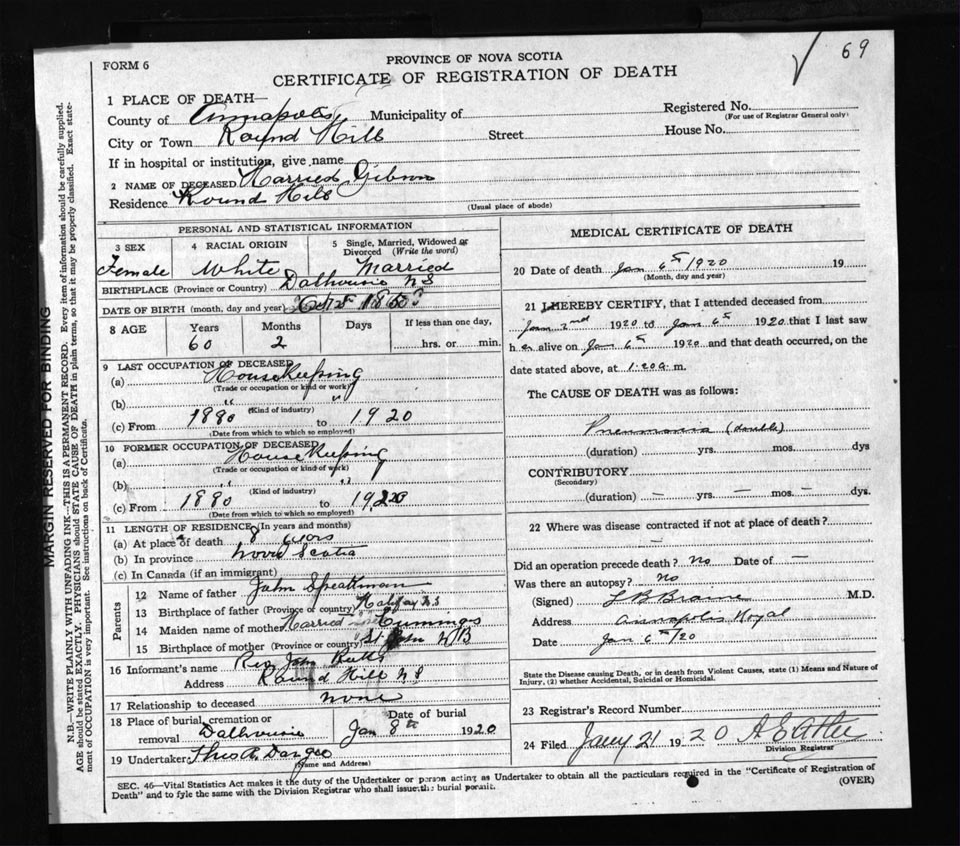 69
FORM 6
PROVINCE OF NOVA SCOTIA
CERTIFICATE OF REGISTRATION OF DEATH
1 PLACE OF DEATH—
County of Annapolis, Municipality of
Registered No.
(For use of Registrar General only)
City or Town Round Hill Street House No.
If in hospital or institution, give name
2 NAME OF DECEASED Harried Gibson
Residence Round Hill
(Usual place of abode)
PERSONAL AND STATISTICAL INFORMATION
3 SEX 4 RACIAL ORIGIN 5 Single, Married, Widowed or Divorced (Write the word)
Female White Married
BIRTHPLACE (Province or Country) Dalhousie N S
DATE OF BIRTH (month, day and year)
8 AGE Years Months Days If less than one day,
60 2 hrs. or min.
9 LAST OCCUPATION OF DECEASED
(a) Housekeeping
(Trade or occupation or kind or work)
(b) " "
(Kind of industry)
(c) From 1880 to 1920
(Date from which to which so employed)
10 FORMER OCCUPATION OF DECEASED
(a) Housekeeping
(Trade or occupation or kind of work)
(b) " "
(Kind of industry)
(c) From 1880 to 1920
(Date from which to which so employed)
11 LENGTH OF RESIDENCE (In years and months)
(a) At place of death 8 years
(b) In province Nova Scotia
(c) In Canada (if an immigrant)
Parents
12 Name of father John
13 Birthplace of father (Province or country) Halifax N S
14 Maiden name of mother Harried Cummings
15 Birthplace of mother (Province or country) St John N B
16 Informant's name Rev John
Address Round Hill N S
17 Relationship to deceased none
18 Place of burial, cremation or removal Dalhousie
Date of burial Jan 8th 1920
19 Undertaker:
(Name and Address)
MEDICAL CERTIFICATE OF DEATH
20 Date of death Jan 6th 1920 19
(Month, day and year)
21 I HEREBY CERTIFY, that I attended deceased from
Jan 2nd 1920 to Jan 6th 1920 that I last saw
h er alive on Jan 6th 1920 and that death occurred, on the
date stated above, at 1.20 a. m.
The CAUSE OF DEATH was as follows:
Pneumonia (double)
(duration) yrs. mos. dys
CONTRIBUTORY
(Secondary)
(duration) — yrs. — mos. — dys.
22 Where was disease contracted if not at place of death?
—
Did an operation precede death? No Date of —
Was there an autopsy? No
(Signed) L B Braine M.D.
Address Annapolis Royal
Date Jan 6th/20
State the Disease causing Death, or in death from Violent Causes, state (1) Means and Nature of
Injury, (2) whether Accidental, Suicidal or Homicidal.
23 Registrar's Record Number
24 Filed Jany 21 1920
Division Registrar
SEC. 46—Vital Statistics Act makes it the duty of the Undertaker or person acting as Undertaker to obtain all the particulars required in the "Certificate of Registration of
Death" and to fyle the same with the Division Registrar who shall issue the burial permit.
(OVER)
MARGIN RESERVED FOR BINDING
N.B.—WRITE PLAINLY WITH UNFADING INK—THIS IS A PERMANENT RECORD. Every item of information should be carefully supplied.
AGE should be stated EXACTLY. PHYSICIANS should STATE CAUSE OF DEATH in plain terms, so that it may be properly classified. Exact state-
ment of OCCUPATION is very important. See instructions on back of Certificate.